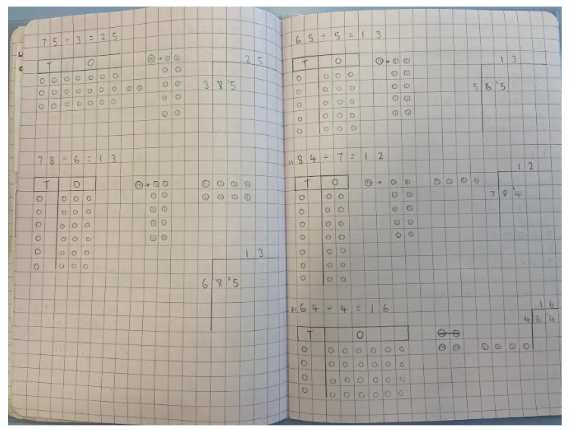 75 ÷ 3 = 25
T O
25
3 8 '5
78 ÷ 6 = 13
T O
13
6 8 '5
65 ÷ 5 = 13
T O
13
5 8 '5
84 ÷ 7 = 12
T O
12
7 8 '4
64 ÷ 4 = 16
T O
16
4 6 '4